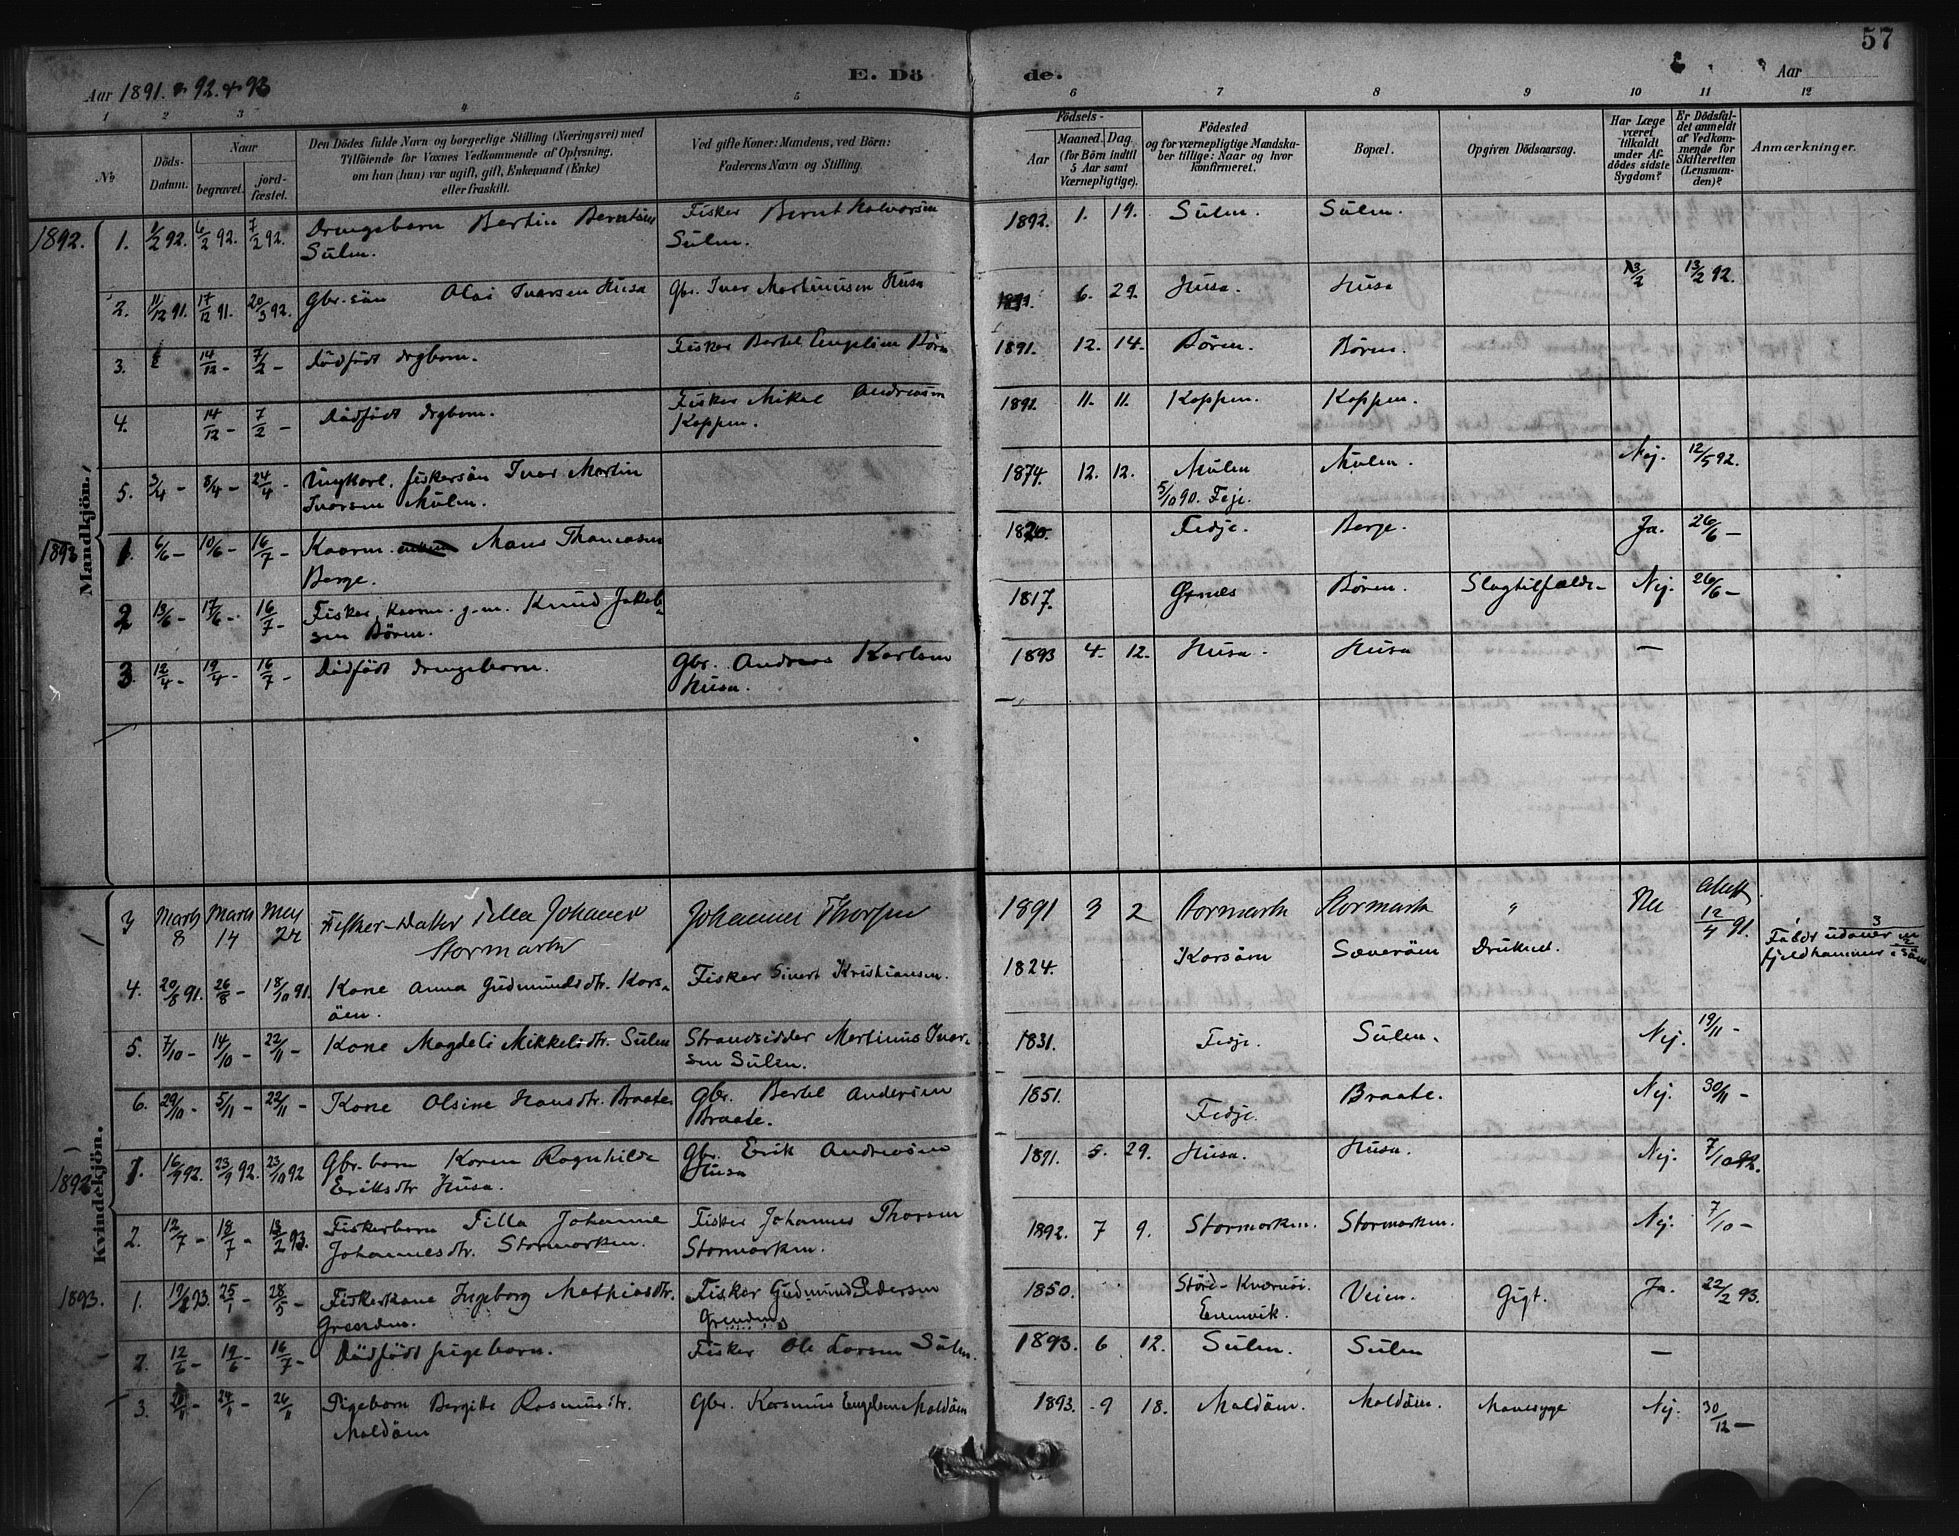 57
Aar 1891. & 92. & 93
E. Dö
de.
Aar
1 2 3 4 5 6 7 8 9 10 11 12
No
Döds-Datum.
Naar
begravet.
jordfæstet.
Den Dödes fulde Navn og borgerlige Stilling (Næringsvei) med
Tilföiende for Voxnes Vedkommende af Oplysning,
om han (hun) var ugift, gift, Enkemand (Enke)
eller fraskilt.
Ved gifte Koner: Mandens, ved Börn:
Faderens Navn og Stilling.
Födsels-
Aar
Maaned. Dag.
(for Börn indtil
5 Aar samt
Værnepligtige).
Födested
og for værnepligtige Mandska-
ber tillige: Naar og hvor
konfirmeret.
Bopæl.
Opgiven Dödsaarsag.
Har Læge
været
tilkaldt
under Af-
dödes sidste
Sygdom?
Er Dödsfal-
det anmeldt
af Vedkom-
mende for
Skifteretten
(Lensman-
den)?
Anmærkninger.
Mandkjön.
1892. 1. 1/2 92. 6/2 92. 7/2 92. Drengebarn Bertin Berntsen Fisker Bernt Halvorsen 1892. 1. 19. Sulen. Sulen.
Sulen. Sulen.
2. 11/12 91. 17/12 91. 20/3 92. Gbr. sön Olai Ivarsen Husa Gbr. Ivar Martinusen Husa 6. 29. Husa. Husa 13/2 13/2 92.
3. 14/12 - 7/2 - Dödfödt drgbarn. Fisker Bertel Engelsen Bören 1891. 12. 14. Bören. Bören.
4. 14/12 - 7/2 - Dödfödt drgbarn. Fisker Mikal Andreasen 1891. 11. 11. Koppen. Koppen.
Koppen.
5. 3/4 - 8/4 - 24/4 - Ungkarl, fiskersön Ivar Martin 1874. 12. 12. Mulen Mulen. Nej. 12/5 92.
Ivarsen Mulen. 5/10 90. Feje.
1893 1. 6/6 - 10/6 - 16/7 - Kaarm. Mons Thomasen 1820. Fedje. Berge. Ja. 26/6 -
Berge.
2 13/6 - 17/6 - 16/7 - Fisker, kaarm. g.m. Knud Jakob- 1817. Ørnes Bören. Slagtilfælde - Nej. 26/6 -
sen Bören.
3. 12/4 - 19/4 - 16/7 - Dödfödt drengebarn. Gbr. Andreas Karlsen 1893 4. 12. Husa. Husa —
Husa.
Kvindekjön.
3 Marts 8 Marts 14 Mey 24 Fisker-Datter Tilla Johanes Johannes Thorsen 1891 3 2 Stormark Stormark " Nei 12/4 91.
Stormark
4. 20/8 91. 26/8 - 18/10 91. Kone Anna Gudmundsdtr. Kors- Fisker Sivert Kristiansen. 1824. Korsöen Sæveröen Druknet. Faldt udover
öen. fjeldhammer
5. 7/10 - 14/10 - 22/11 - Kone Magdeli Mikkelsdtr. Sulen Strandsidder Martinus Ivar- 1831. Fedje. Sulen. Nej. 19/11 -
sen Sulen.
6. 29/10 - 5/11 - 22/11 - Kone Olsine Hansdtr. Braate Gbr. Bertel Andersen 1851. Fedje. Braate. Nej. 30/11 -
Braate.
1892 1. 16/9 92. 23/9 92. 23/10 92 Gbr. barn Karen Ragnhilda Gbr. Erik Andreasen 1891. 5. 29. Husa. Husa. Nej. 7/10 92.
Eriksdtr Husa. Husa
2. 12/7 - 18/7 - 13/2 93. Fiskerbarn Tilla Johanne Fisker Johannes Thorsen 1892. 7 9. Stormarken. Stormarken. Nej. 7/10 -
Johannesdtr. Stormarken. Stormarken.
1893. 1. 93. 25/1 - 28/5 - Fiskerkone Ingeborg Mathiasdtr. Fisker Gudmund Pedersen 1850. Störe-Kværnöi. Veien. Gigt. Ja. 22/2 93.
Grenden. Grenden Evenvik.
2. 12/6 - 19/6 - 16/7 - Dödfödt pigebarn. Fisker Ole Larsen Sulen. 1893. 6 12. Sulen. Sulen —
3. 24/11 - 26/11 Pigebarn Bergitte Rasmusdtr. Gbr. Rasmus Engelsen Moldöen 1893. 9 18. Moldöen. Moldöen. Mavesyge Nej. 30/12 —
Moldöen